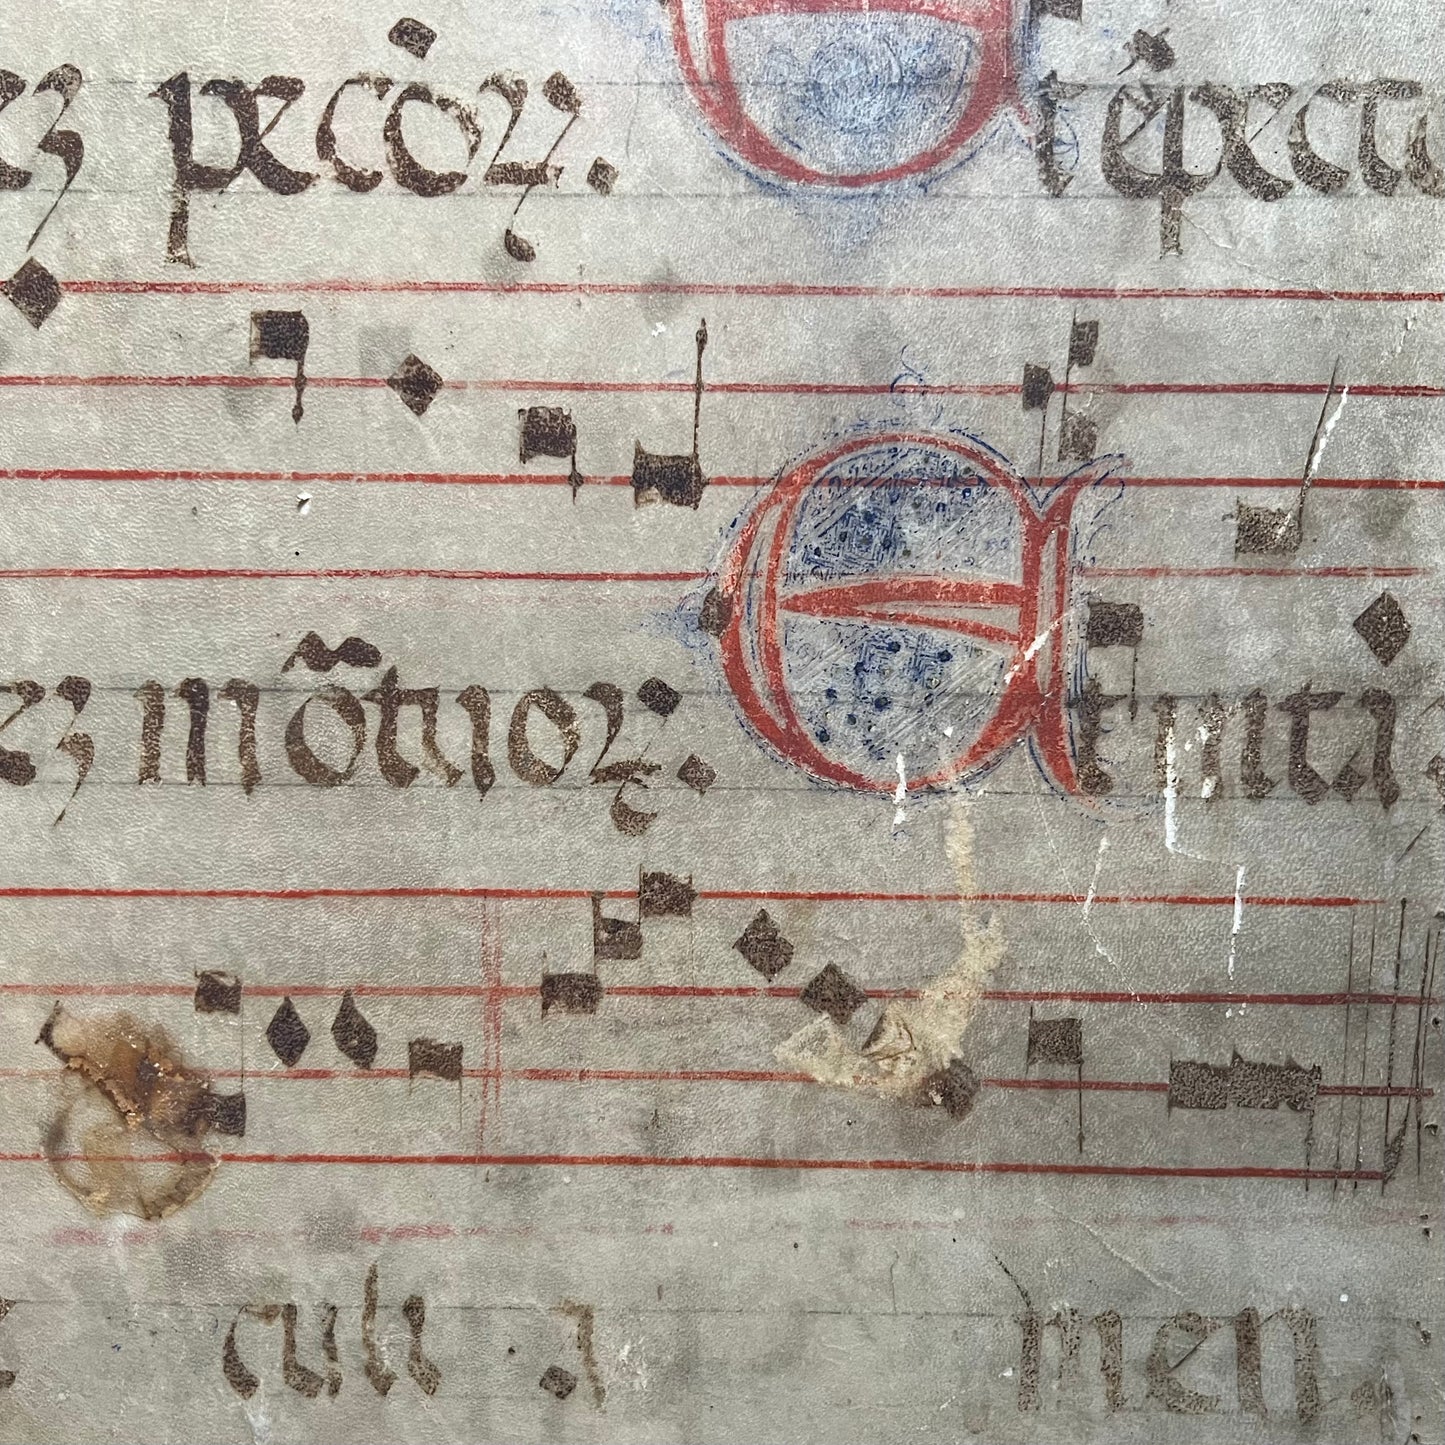 eꝫ pecōꝝ. Et expecta
eꝫ mõtuoꝝ. Et uita
culi . a men.